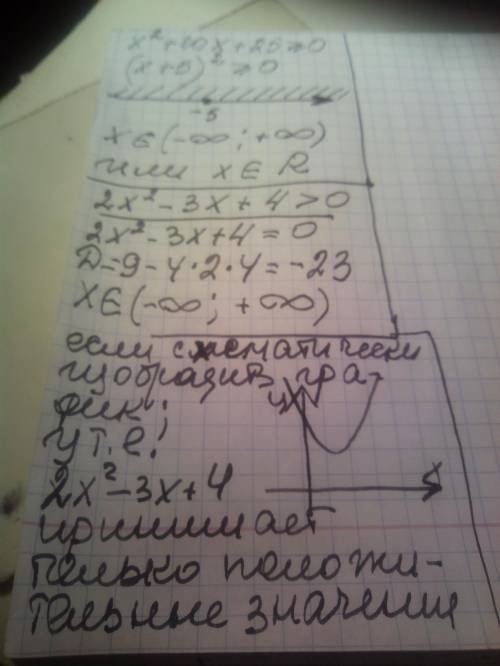 x² + 10x + 25 ≥ 0
(x+5)² ≥ 0
-5
x ∈ (-∞; +∞)
или x ∈ R
2x² - 3x + 4 > 0
2x² - 3x + 4 = 0
D = 9 - 4·2·4 = -23
x ∈ (-∞; +∞)
если схематически
изобразить гра-
фик:
y
т.е.
2x² - 3x + 4
x
принимает
только положи-
тельные значения